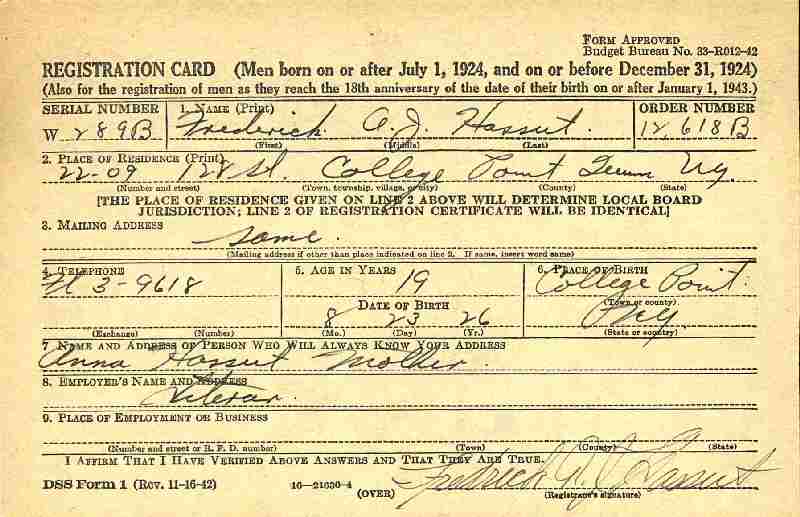 FORM APPROVED
Budget Bureau No. 33-R012-42
REGISTRATION CARD (Men born on or after July 1, 1924, and on or before December 31, 1924)
(Also for the registration of men as they reach the 18th anniversary of the date of their birth on or after January 1, 1943.)
SERIAL NUMBER 1. NAME (Print) ORDER NUMBER
W 289B Frederick A. J. Hassut. 12,618B
(First) (Middle) (Last)
2. PLACE OF RESIDENCE (Print)
22-09 128 St. College Point N.Y.
(Number and street) (Town, township, village, or city) (County) (State)
[THE PLACE OF RESIDENCE GIVEN ON LINE 2 ABOVE WILL DETERMINE LOCAL BOARD
JURISDICTION; LINE 2 OF REGISTRATION CERTIFICATE WILL BE IDENTICAL]
3. MAILING ADDRESS
Same.
(Mailing address if other than place indicated on line 2. If same, insert word same)
4. TELEPHONE 5. AGE IN YEARS 6. PLACE OF BIRTH
Fl 3-9618 19 College Point.
DATE OF BIRTH (Town or county)
8 23 26 N.Y.
(Exchange) (Number) (Mo.) (Day) (Yr.) (State or country)
7. NAME AND ADDRESS OF PERSON WHO WILL ALWAYS KNOW YOUR ADDRESS
Anna Hassut Mother.
8. EMPLOYER'S NAME AND ADDRESS
9. PLACE OF EMPLOYMENT OR BUSINESS
(Number and street or R. F. D. number) (Town) (County) (State)
I AFFIRM THAT I HAVE VERIFIED ABOVE ANSWERS AND THAT THEY ARE TRUE.
DSS Form 1 (Rev. 11-16-42) 16—21630-4 (OVER) Fredrick A. J. Hassut
(Registrant's signature)